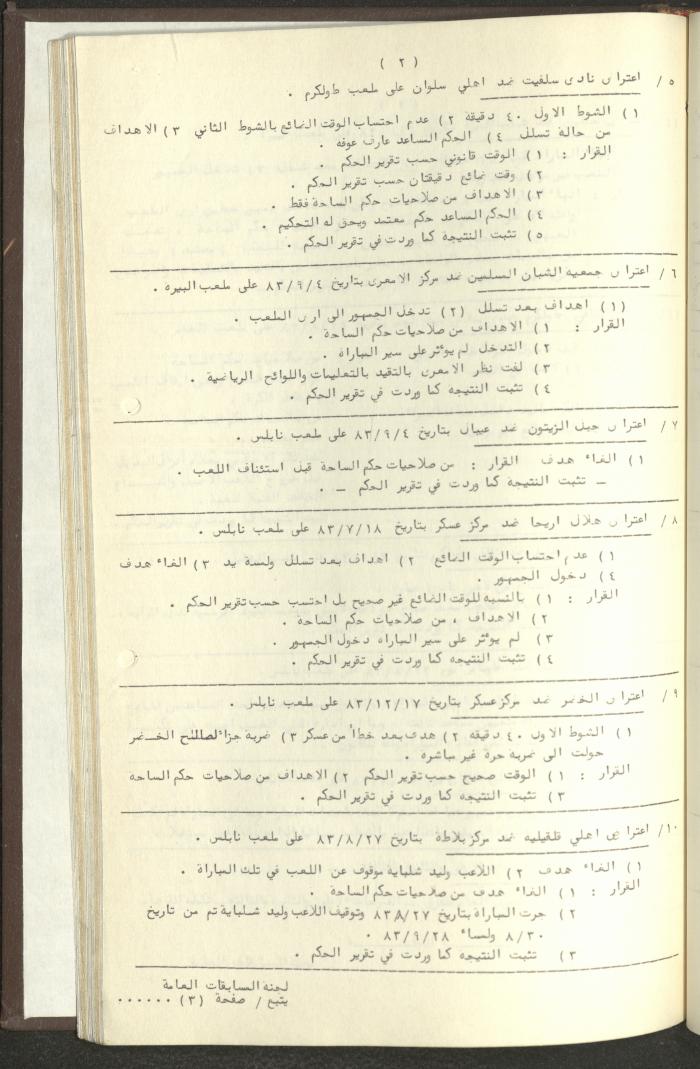 ( ٢ )
٥ / اعتراض نادى سلفيت ضد اهلي سلوان على ملعب طولكرم .
١ ) الشوط الاول ٤٠ دقيقة ٢ ) عدم احتساب الوقت الضائع بالشوط الثاني ٣ ) الاهداف
من حالة تسلل ٤ ) الحكم المساعد عارف عوفه .
القرار : ١ ) الوقت قانوني حسب تقرير الحكم .
٢ ) وقت ضائع دقيقتان حسب تقرير الحكم .
٣ ) الاهداف من صلاحيات حكم الساحة فقط .
٤ ) الحكم المساعد حكم معتمد ويحق له التحكيم .
٥ ) تثبت النتيجة كما وردت في تقرير الحكم .
٦ / اعتراض جمعيه الشبان المسلمين ضد مركز الامعرى بتاريخ ٨٣/٩/٤ على ملعب البيره .
(١) اهداف بعد تسلل (٢) تدخل الجمهور الى ارض الملعب .
القرار : ١ ) الاهداف من صلاحيات حكم الساحة .
٢ ) التدخل لم يؤثر على سير المباراة .
٣ ) لفت نظر الامعرى بالتقيد بالتعليمات واللوائح الرياضية .
٤ ) تثبت النتيجه كما وردت في تقرير الحكم .
٧ / اعتراض جبل الزيتون ضد عيبال بتاريخ ٨٣/٩/٤ على ملعب نابلس .
١ ) الغاء هدف القرار : من صلاحيات حكم الساحة قبل استئناف اللعب .
ـ تثبت النتيجة كما وردت في تقرير الحكم ـ .
٨ / اعتراض هلال اريحا ضد مركز عسكر بتاريخ ٨٣/٧/١٨ على ملعب نابلس .
١ ) عدم احتساب الوقت الضائع ٢ ) اهداف بعد تسلل ولمسة يد ٣ ) الغاء هدف
٤ ) دخول الجمهور .
القرار : ١ ) بالنسبه للوقت الضائع غير صحيح بل احتسب حسب تقرير الحكم .
٢ ) الاهداف ، من صلاحيات حكم الساحة .
٣ ) لم يؤثر على سير المباراه دخول الجمهور .
٤ ) تثبت النتيجه كما وردت في تقرير الحكم .
٩ / اعتراض الخضر ضد مركز عسكر بتاريخ ٨٣/١٢/١٧ على ملعب نابلس .
١ ) الشوط الاول ٤٠ دقيقه ٢ ) هدف بعد خطأ من عسكر ٣ ) ضربة جزاء لصالح الخضر
حولت الى ضربة حرة غير مباشره .
القرار : ١ ) الوقت صحيح حسب تقرير الحكم ٢ ) الاهداف من صلاحيات حكم الساحه
٣ ) تثبت النتيجه كما وردت في تقرير الحكم .
١٠/ اعتراض اهلي قلقيليه ضد مركز بلاطة بتاريخ ٨٣/٨/٢٧ على ملعب نابلس .
١ ) الغاء هدف ٢ ) اللاعب وليد شلباية موقوف عن اللعب في تلك المباراة .
القرار : ١ ) الغاء هدف من صلاحيات حكم الساحة .
٢ ) جرت المباراة بتاريخ ٨٣/٨/٢٧ وتوقيف اللاعب وليد شلباية تم من تاريخ
٨/٣٠ ولمساء ٨٣/٩/٢٨ .
٣ ) تثبت النتيجه كما وردت في تقرير الحكم .
لجنه المسابقات العامة
يتبع / صفحة (٣) ......